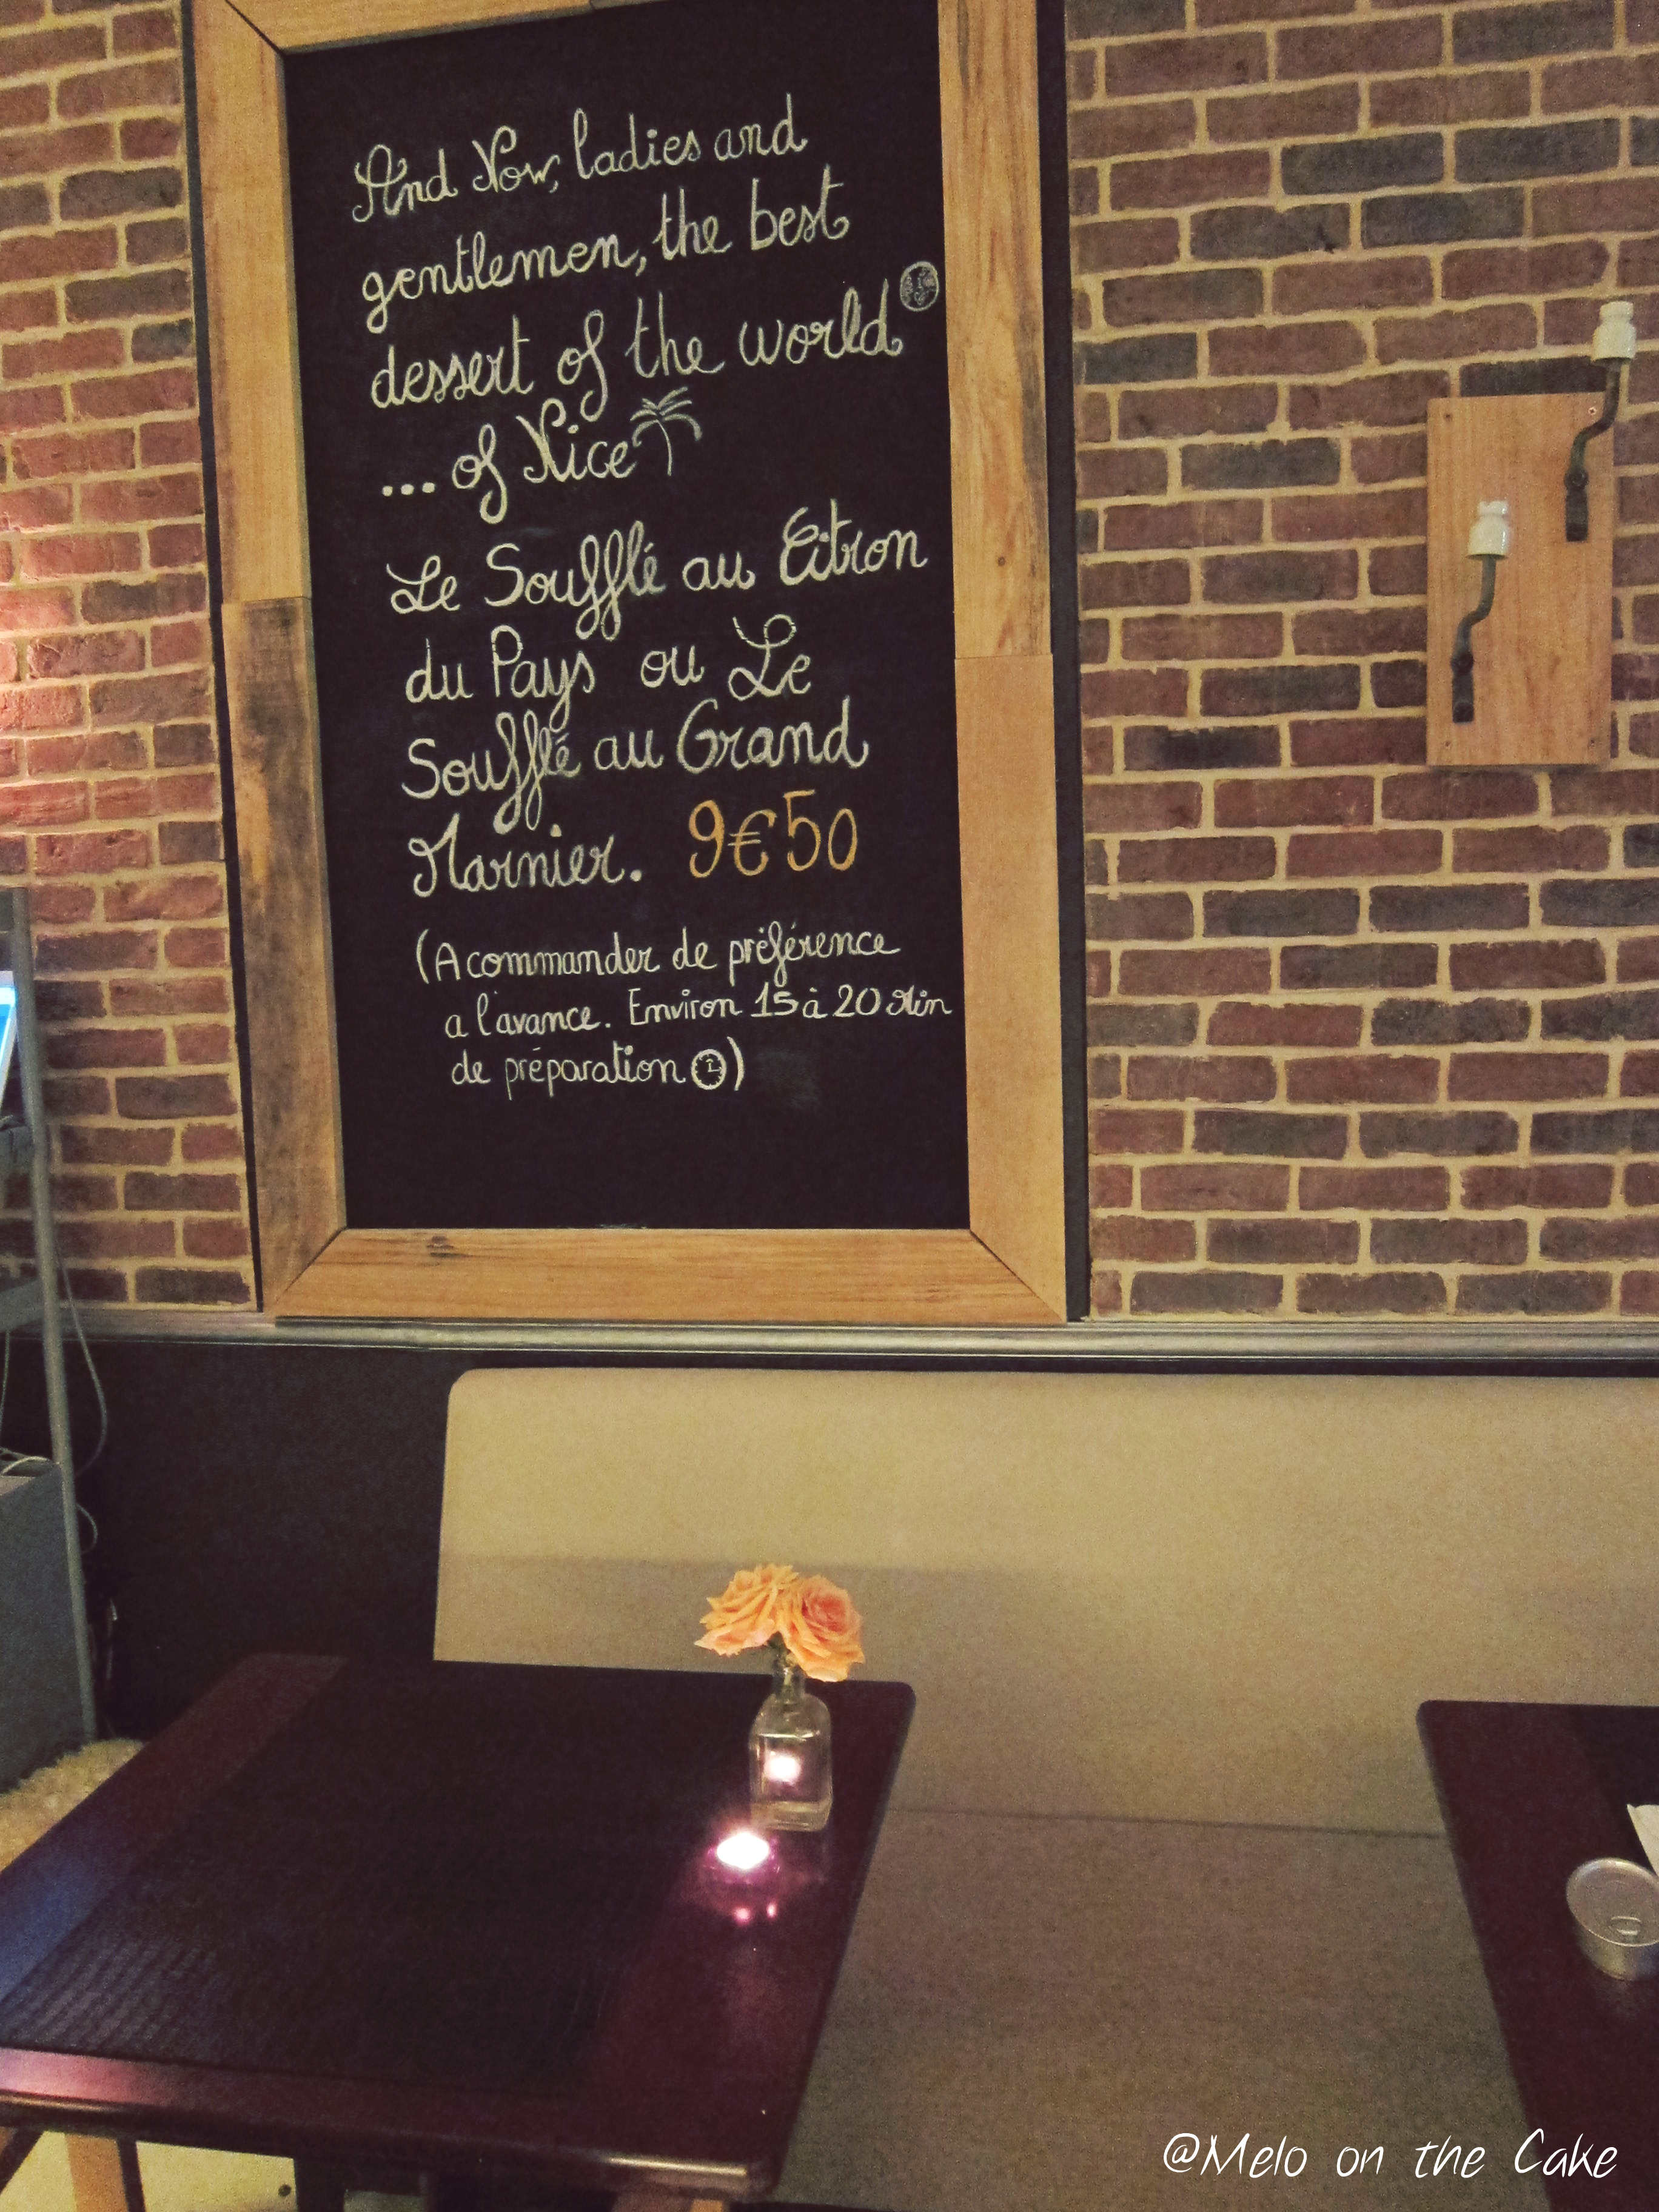 And Now, ladies and
gentlemen, the best
dessert of the world
... of Nice
Le Soufflé au Citron
du Pays ou Le
Soufflé au Grand
Marnier. 9€50
(A commander de préférence
a l'avance. Environ 15 à 20 Min
de préparation)
@Melo on the Cake